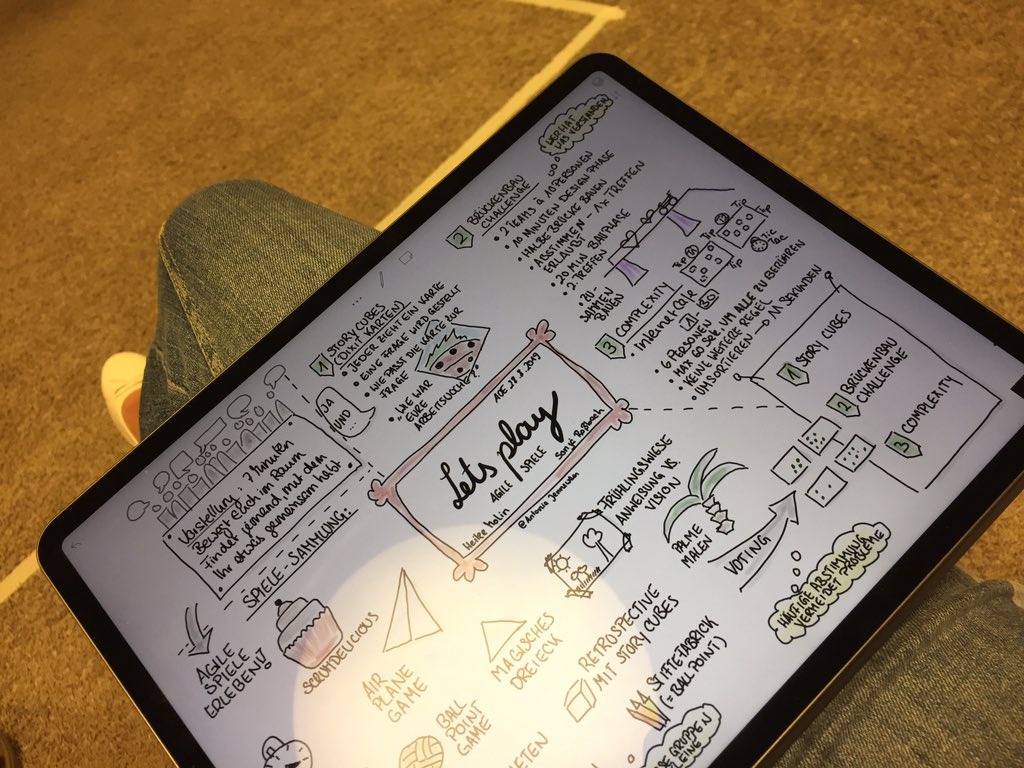 Let's play
AGILE SPIELE
ABE 28.3.2019
Heike
@Antonia
VORSTELLUNG 7 Minuten
Bewegt euch im Raum
findet jemand mit dem
ihr etwas gemeinsam habt
JA
UND
1 STORY CUBES
(DIXIT KARTEN)
• JEDER ZIEHT EIN KARTE
• EINE FRAGE WIRD GESTELLT
• WIE PASST DIE KARTE ZUR
FRAGE
"WIE WAR
EURE
ARBEITSWOCHE?"
2 BRÜCKENBAU
CHALLENGE
WER HAT
DAS VERSTANDEN
• 2 TEAMS á 10 PERSONEN
• 10 MINUTEN DESIGN PHASE
• HALBE BRÜCKE BAUEN
• ABSTIMMEN - 1X TREFFEN
ERLAUBT
• 20 MIN BAUPHASE
• 2 TREFFEN
• ZU-
SAMMEN
BAUEN
3 COMPLEXITY
• 6 PERSONEN
• MAX 60 SEK UM ALLE ZU BERÜHREN
• KEINE WEITERE REGEL
• UMSORTIEREN → 11 SEKUNDEN
Tip
Tip
Tip
Tip
Tic
Tac
1 STORY CUBES
2 BRÜCKENBAU
CHALLENGE
3 COMPLEXITY
SPIELE-SAMMLUNG:
AGILE
SPIELE
ERLEBEN
SCRUMDELICIOUS
AIR
PLANE
GAME
BALL
POINT
GAME
MAGISCHES
DREIECK
FRÜHLINGSWIESE
ANWEISUNG VS
VISION
RETROSPECTIVE
MIT STORY CUBES
PALME
MALEN
VOTING
STIFTEFABRICK
(=BALLPOINT)
HÄUFIGE ABSTIMMUNG
VERMEIDET PROBLEME